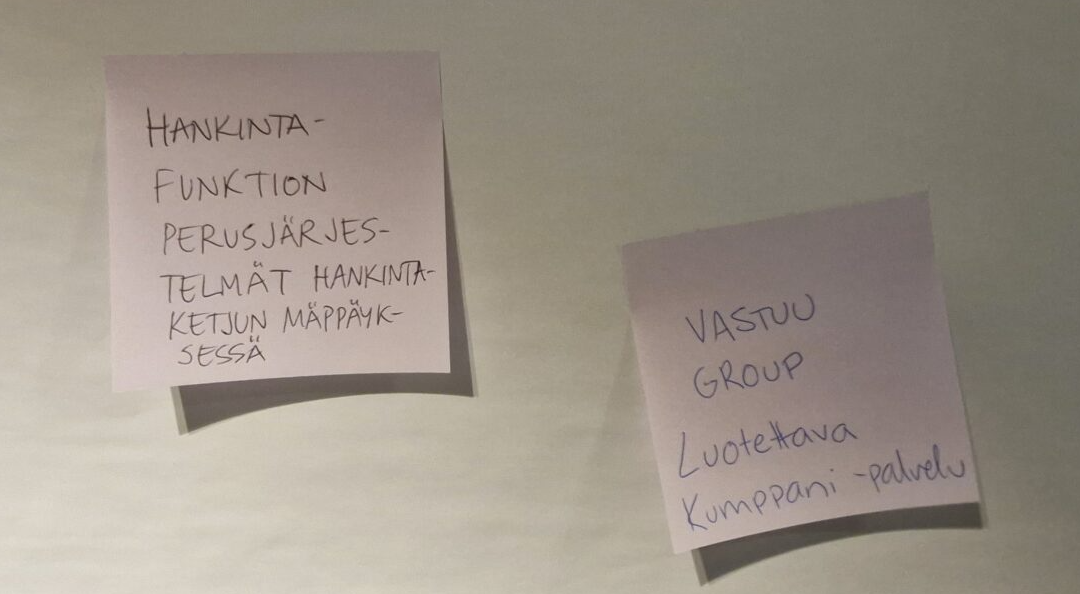 HANKINTA-
FUNKTION
PERUSJÄRJES-
TELMÄT HANKINTA-
KETJUN MÄPPÄYK-
SESSÄ
VASTUU
GROUP
Luotettava
Kumppani -palvelu